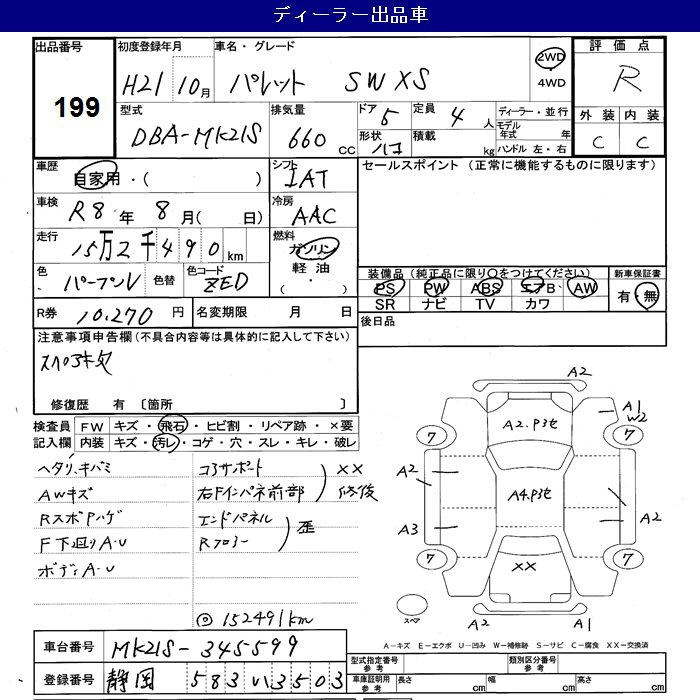 ディーラー出品車
出品番号
199
初度登録年月
H21 10月
車名・グレード
パレット SW XS
2WD
4WD
評価点
R
外装 内装
C C
型式
DBA-MK21S
排気量
660 CC
ドア 5
形状 ハコ
定員 4 人
積載 kg
ディーラー・並行
モデル年式 年
ハンドル 左・右
車歴
自家用・( )
シフト
IAT
セールスポイント (正常に機能するものに限ります)
車検
R8年 8月( 日)
冷房
AAC
走行
15万2千490km
燃料
ガソリン
軽油
( ・ )
色
パープルV
色替
色コード
ZED
装備品 (純正品に限り○をつけてください)
PS PW ABS エアB AW
SR ナビ TV カワ
新車保証書
有・無
R券 10,270 円
名変期限 月 日
後日品
注意事項申告欄 (不具合内容等は具体的に記入して下さい)
修復歴 有 〔箇所
検査員記入欄
FW キズ・飛石・ヒビ割・リペア跡・×要
内装 キズ・汚レ・コゲ・穴・スレ・キレ・破レ
ヘタリ、キバミ
AWキズ
RスポPハゲ
F下廻りA-U
ボディA-U
コアサポート
右Fインパネ前部
XX
修後
エンドパネル
Rフロアー
歪
◎ 152491km
A2
A2.P3セ
A1
W2
7
7
A2
A4.P3セ
A2
A3
7
7
XX
スペア
A2
A1
A-キズ E-エクボ U-凹み W-補修跡 S-サビ C-腐食 XX-交換済
車台番号 MK21S-345599
登録番号 静岡 583 い 3503
型式指定番号 参考
類別区分番号 参考
車庫証明用 参考
長さ cm
幅 cm
高さ cm